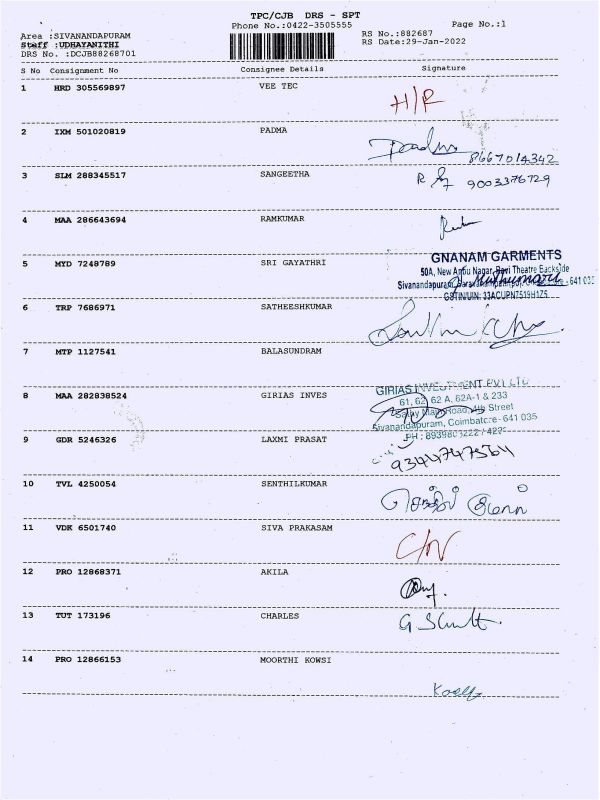 TPC/CJB DRS - SPT
Phone No.:0422-3505555 Page No.:1
Area :SIVANANDAPURAM RS No.:882687
Staff :UDHAYANITHI RS Date:29-Jan-2022
DRS No. :DCJB88268701
S No Consignment No Consignee Details Signature
1 HRD 305569897 VEE TEC
H/R
2 IXM 501020819 PADMA
Padma 8667014342
3 SLM 288345517 SANGEETHA
9003376729
4 MAA 286643694 RAMKUMAR
GNANAM GARMENTS
5 MYD 7248789 SRI GAYATHRI
50A, New Anbu Nagar, Ravi Theatre Backside
Sivanandapuram, - 641 035
GSTIN/UIN: 33ACUPN7519H1Z5
6 TRP 7686971 SATHEESHKUMAR
7 MTP 1127541 BALASUNDRAM
8 MAA 282838524 GIRIAS INVES
GIRIAS INVESTMENT PVT LTD
61, 62, 62 A, 62A-1 & 233
Road, 4th Street
Sivanandapuram, Coimbatore- 641 035
9 GDR 5246326 LAXMI PRASAT
PH :
9344747564
10 TVL 4250054 SENTHILKUMAR
11 VDK 6501740 SIVA PRAKASAM
C/N
12 PRO 12868371 AKILA
13 TUT 173196 CHARLES
14 PRO 12866153 MOORTHI KOWSI